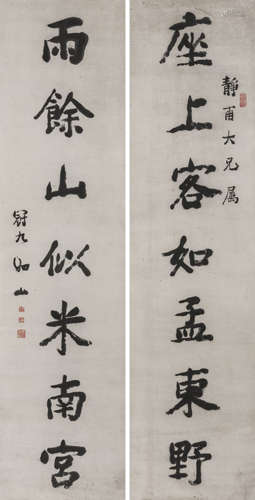 座上客如孟東野
靜甫大兄属
雨餘山似米南宮
冠九如山